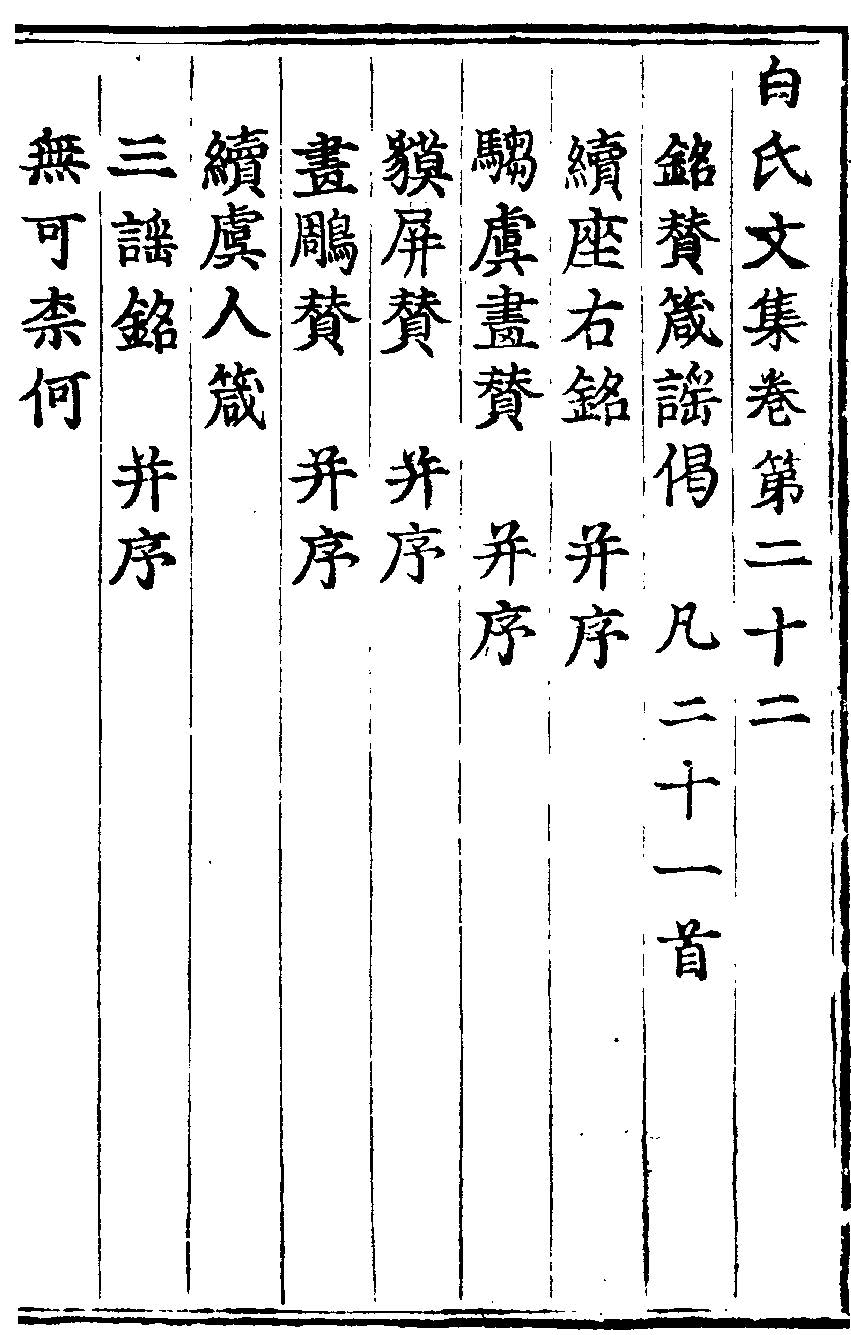 白氏文集卷第二十二
銘贊箴謡偈　凡二十一首
續座右銘　并序
騶虞畫贊　并序
貘屏贊　并序
畫鵰贊　并序
續虞人箴
三謡銘　并序
無可柰何